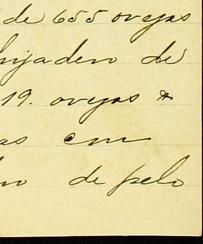 de 655 ovejas
hijaden de
19. ovejas &
as em
de pelo